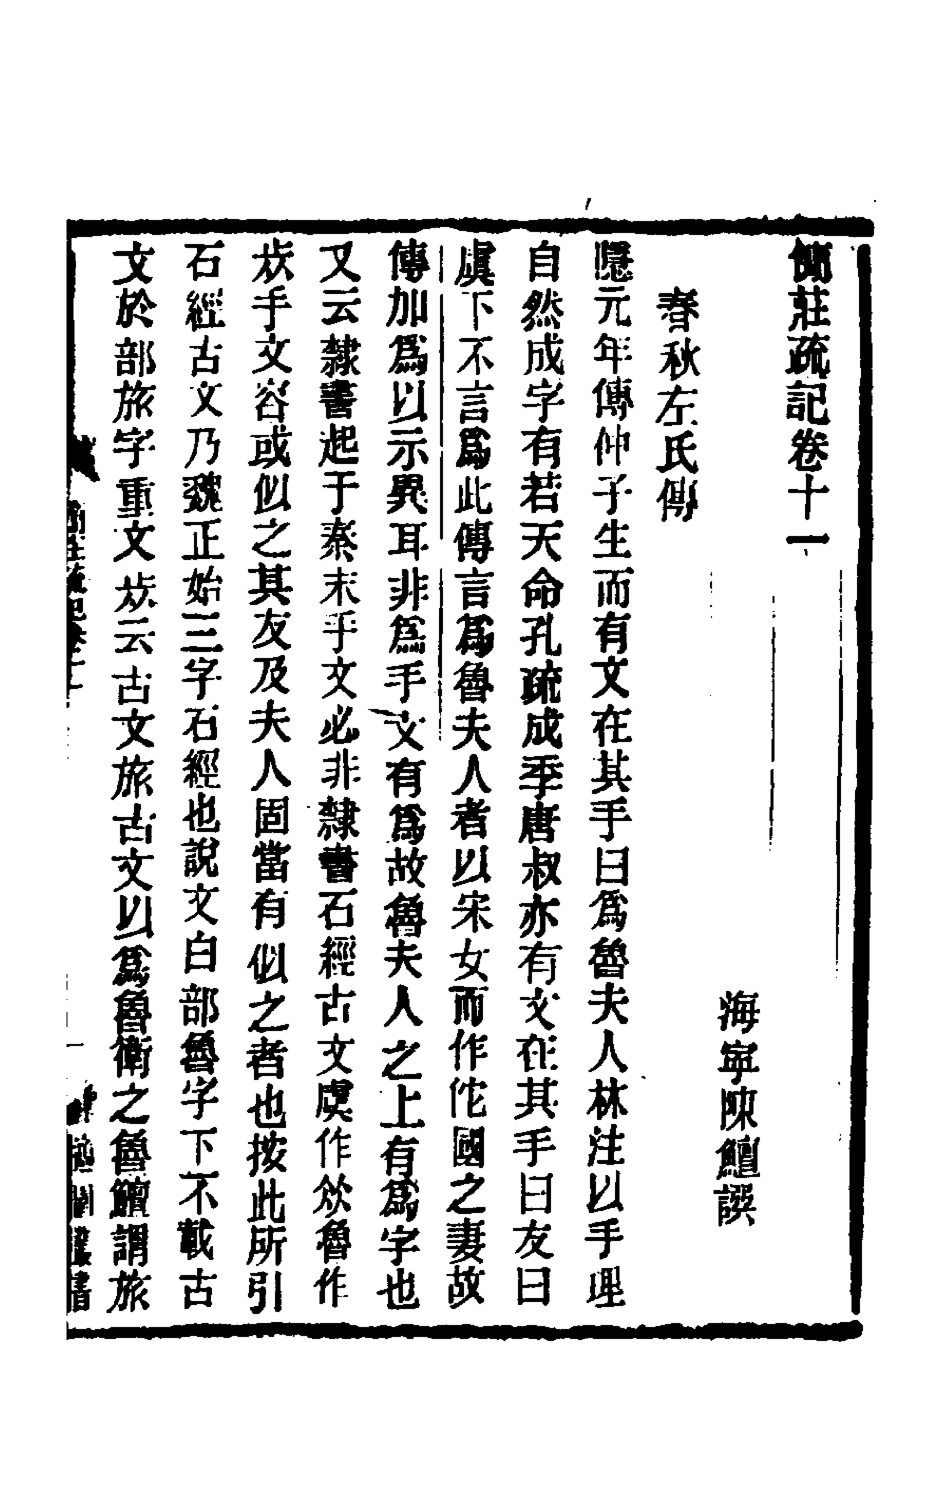 簡莊疏記卷十一
海寧陳鱣譔
春秋左氏傳
隱元年傳仲子生而有文在其手曰爲魯夫人林注以手理
自然成字有若天命孔疏成季唐叔亦有文在其手曰友曰
虞下不言爲此傳言爲魯夫人者以宋女而作佗國之妻故
傳加爲以示異耳非爲手文有爲故魯夫人之上有爲字也
又云隸書起于秦末手文必非隸書石經古文虞作㷼魯作
㫺手文容或似之其友及夫人固當有似之者也按此所引
石經古文乃魏正始三字石經也說文白部魯字下不載古
文於部旅字重文㫺云古文旅古文以爲魯衛之魯鱣謂旅
簡莊疏記卷十一
一